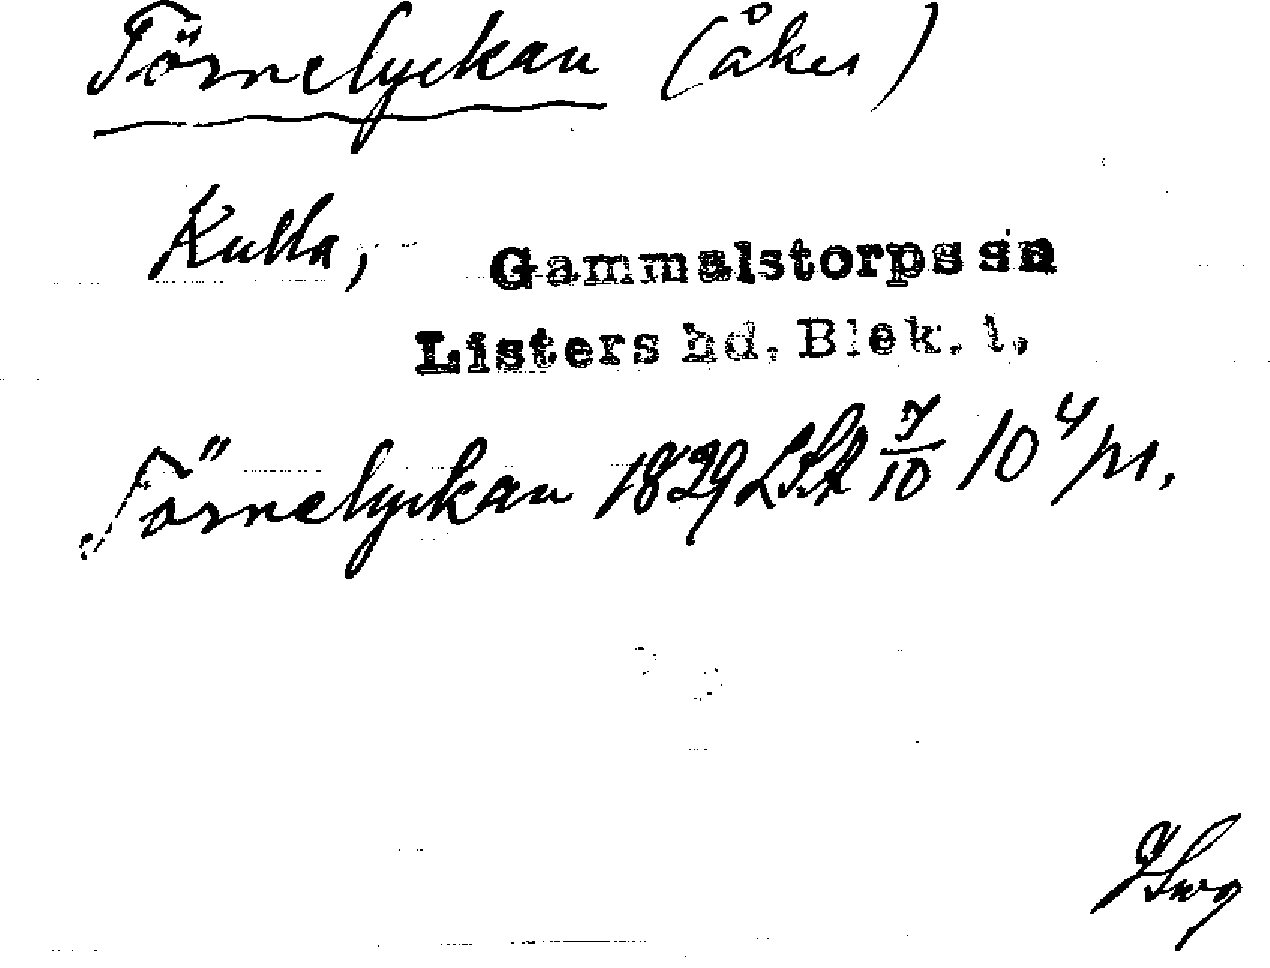 Törnelyckan (åker)
Kulla, Gammalstorps sn
Listers hd. Blek. l.
Törnelyckan 1829 LSA 7/10 10⁴ m.